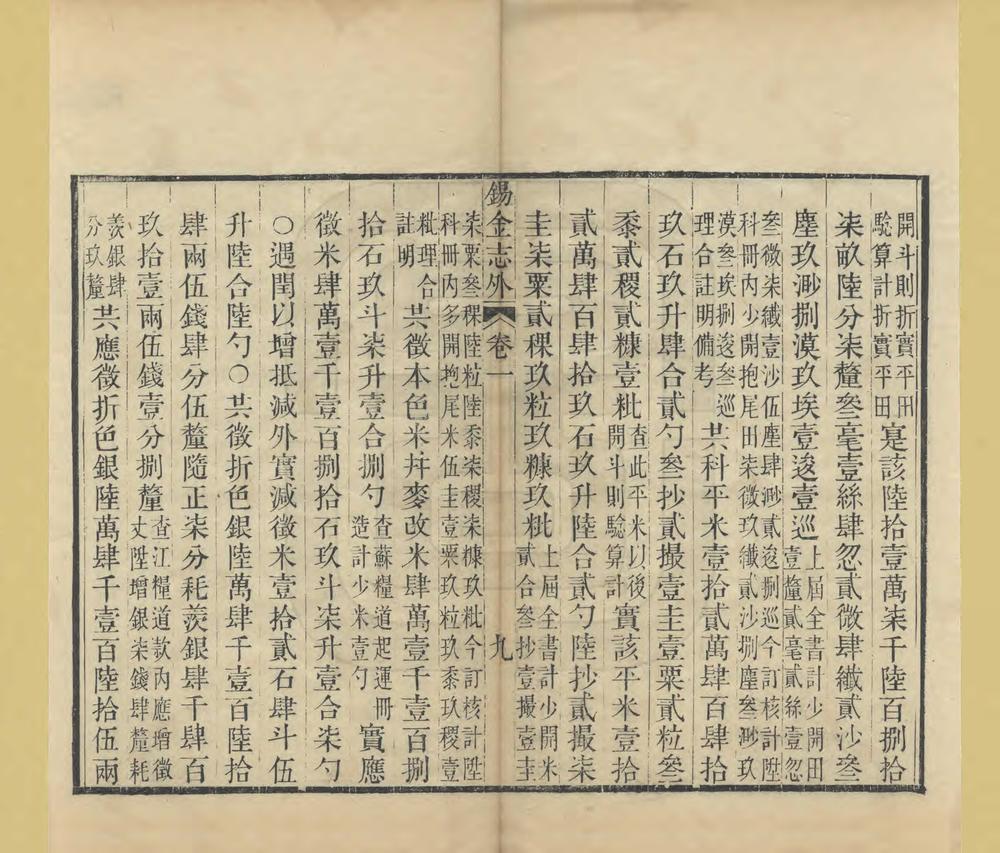 開斗則折實平田
騐算計折實平田
寔該陸拾壹萬柒千陸百捌拾
柒畝陸分柒釐叄毫壹絲肆忽貳微肆纖貳沙叄
塵玖渺捌漠玖埃壹逡壹巡
上屆全書計少開田
壹釐貳毫貳絲壹忽
叄微柒纖壹沙伍塵肆渺貳逡捌巡今訂核計陞
科冊內少開抱尾田柒微玖纖貳沙捌塵叄渺玖
漠叄埃捌逡叄巡
理合註明備考
共科平米壹拾貳萬肆百肆拾
玖石玖升肆合貳勺叄抄貳撮壹圭壹粟貳粒叄
黍貳稷貳糠壹粃
查此平米以後
開斗則騐算計
實該平米壹拾
貳萬肆百肆拾玖石玖升陸合貳勺陸抄貳撮柒
圭柒粟貳稞玖粒玖糠玖粃
上屆全書計少開米
貳合叄抄壹撮壹圭
錫金志外 卷一 九
柒粟叄稞陸粒陸黍柒稷柒糠玖粃今訂核計陞
科冊內多開抱尾米伍圭壹粟玖粒玖黍玖稷壹
粃理合
註明
共徵本色米并麥改米肆萬壹千壹百捌
拾石玖斗柒升壹合捌勺
查蘇糧道起運冊
造計少米壹勺
實應
徵米肆萬壹千壹百捌拾石玖斗柒升壹合柒勺
○遇閏以增抵減外實減徵米壹拾貳石肆斗伍
升陸合陸勺○共徵折色銀陸萬肆千壹百陸拾
肆兩伍錢肆分伍釐隨正柒分耗羨銀肆千肆百
玖拾壹兩伍錢壹分捌釐
查江糧道款內應增徵
丈陞增銀柒錢肆釐耗
羨銀肆
分玖釐
共應徵折色銀陸萬肆千壹百陸拾伍兩